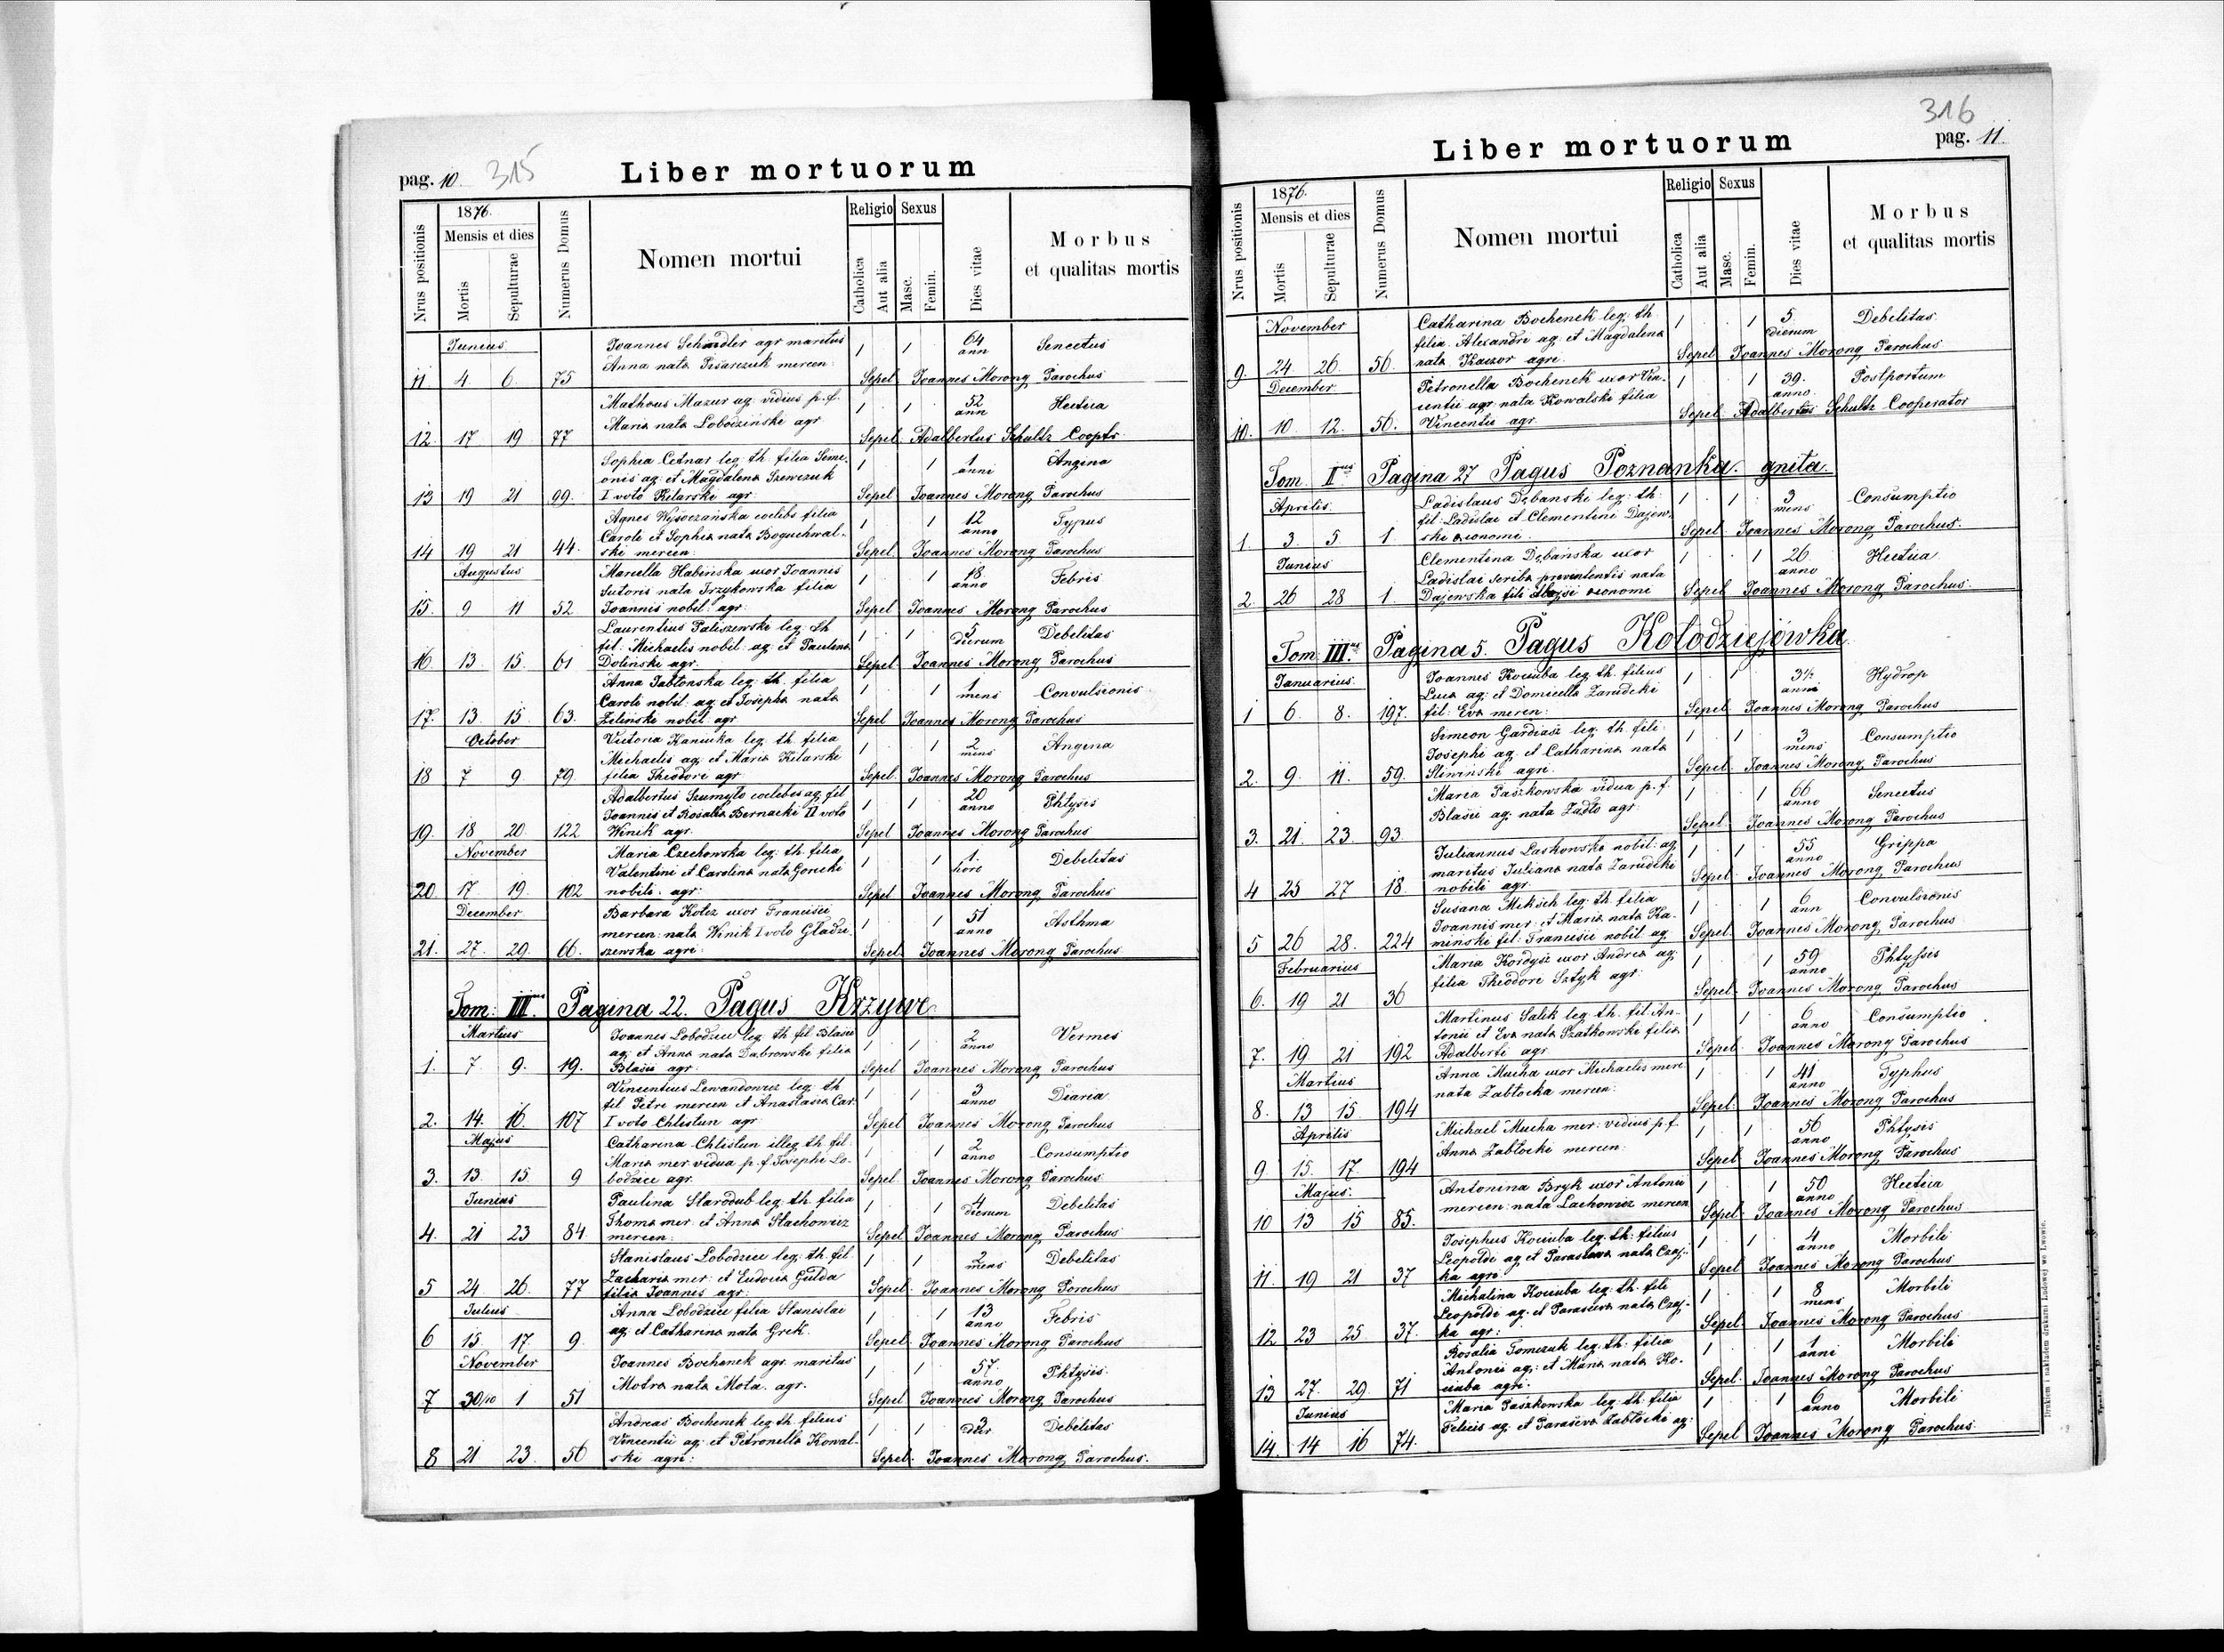 pag. 10. 315
Liber mortuorum
Nrus positionis
1876.
Mensis et dies
Mortis
Sepulturae
Numerus Domus
Nomen mortui
Religio
Catholica
Aut alia
Sexus
Masc.
Femin.
Dies vitae
Morbus
et qualitas mortis
Junius
Joannes Schindler agr maritus 1 1 64 ann Senectus
Anna nata Pisarczuk mercen:
11 4 6. 75 Sepel Joannes Morong Parochus
Mathous Mazur ag. vidius p. f. 1 1 52 ann Hectica
Maria nata Loboczinski agr
12. 17 19 77 Sepel Adalbertus Schultz Cooptr.
Sophia Cetnar leg: th. filia Sime- 1 1 1 anni Angina
onis ag: et Magdalena Szewczuk
13 19 21 99. I voto Kilarski agr: Sepel Joannes Morong Parochus
Agnes Wysoczańska coelibs filia 1 1 12 anno Typus
Caroli et Sophia nata Boguchwal-
14 19 21 44. ski mercen: Sepel Joannes Morong Parochus
Augustus
Marcella Habińska uxor Joannis 1 1 18 anno Febris
Sutoris nata Trzykowska filia
15. 9 11 52 Joannis nobil: agr: Sepel Joannes Morong Parochus
Laurentius Paliszewski leg: th 1 1 5 dierum Debelitas
fil: Michaelis nobil: ag: et Paulina
16. 13. 15. 61 Dolinski agr. Sepel Joannes Morong Parochus
Anna Jabłonska leg: th. filia 1 1 1 mens Convulsionis
Caroli nobil: ag: et Josepha nata
17. 13. 15. 63. Zelinski nobil: agr Sepel Joannes Morong Parochus
October
Victoria Kaniuka leg. th. filia 1 1 2 mens Angina
Michaelis ag: et Maria Kilarski
18 7 9. 79. filia Theodori agr Sepel Joannes Morong Parochus
Adalbertus Szumyło coelebs ag. fil 1 1 20 anno Phtysis
Joannis et Rosalia Bernacki II voto
19. 18 20. 122 Winik agr. Sepel Joannes Morong Parochus
November
Maria Czechowska leg: th. filia 1 1 1. hore Debelitas
Valentini et Carolina nata Gorecki
20. 17. 19. 102 nobili. agr: Sepel Joannes Morong Parochus
December
Barbara Kotez uxor Francisci 1 1 51 anno Asthma
mercen: nata Winik I voto Gładzi-
21. 27. 29. 66. szewska agri: Sepel. Joannes Morong Parochus.
Tom: III. Pagina 22. Pagus Krzywe.
Martius
Joannes Lobodziec leg. th fil Blasii 1 1 2 anno Vermes
ag: et Anna nata Dabrowski filia
1. 7 9. 19. Blasii agr: Sepel Joannes Morong Parochus
Vincentius Lewandowicz leg. th 1 1 3 anno Diaria
fil Petri mercen et Anastasia Car
2. 14. 16. 107 I voto Chlistun agr Sepel Joannes Morong Parochus
Majus
Catharina Chlistun illeg th fil. 1 1 2 anno Consumptio
Maria mer. vidua p. f. Josephi Lo-
3. 13. 15. 9 bodzice agr. Sepel. Joannes Morong Parochus
Junius
Paulina Starodub leg. th. filia 1 1 4 dierum Debelitas
Thoma mer. et Anna Stachowicz
4. 21 23 84 mercen: Sepel Joannes Morong Parochus
Stanislaus Lobodziec leg: th. fil. 1 1 2 mens Debelitas
Zacharia mer: et Eudocia Gulda
5 24 26. 77 filia Joannis agr: Sepel. Joannes Morong Parochus
Julius
Anna Lobodziec filia Stanislai 1 1 13 anno Febris
ag: et Catharina nata Grek.
6 15 17. 9. Sepel. Joannes Morong Parochus
November
Joannes Bochenek agr. maritus 1 1 57. anno Phtysis.
Motra nata Mota. agr.
7 30/10 1 51 Sepel Joannes Morong Parochus
Andreas Bochenek leg th. filius 1 1 3 Debelitas
Vincentii ag: et Petronella Kowal-
8 21 23. 56 ski agri: Sepel. Joannes Morong Parochus.
316
Liber mortuorum
pag. 11.
Nrus positionis
1876.
Mensis et dies
Mortis
Sepulturae
Numerus Domus
Nomen mortui
Religio
Catholica
Aut alia
Sexus
Masc.
Femin.
Dies vitae
Morbus
et qualitas mortis
November
Catharina Bochenek leg: th. 1 1 5. dierum Debelitas
filia. Alexandri ag. et Magdalena
9. 24 26. 56. nata Kaczor agri. Sepel Joannes Morong Parochus
December
Petronella Bochenek uxor Vin- 1 1 39. anno. Postportum
centii agr. nata Kowalski filia
10. 10. 12. 56. Vincentii agr. Sepel. Adalbertus Schultz Cooperator
Tom. II Pagina 27 Pagus Poznanka. gnita.
Aprilis.
Ladislaus Dębanski leg: th: 1 1 3 mens Consumptio
fil: Ladislai et Clementini Dajew-
1. 3. 5 1 ski oconomi. Sepel Joannes Morong Parochus.
Junius
Clementina Dębańska uxor 1 1 26 anno Hectica
Ladislai scriba provententis nata
2. 26 28 1. Dajewska fili Aloysi oconomi Sepel Joannes Morong Parochus.
Tom III. Pagina 5. Pagus Kołodziejówka.
Januarius.
Joannes Kociuba leg. th. filius 1 1 3½ anni Hydrop
Luca ag: et Domicella Zarudcki
1 6. 8. 197. fil: Eva mercn: Sepel. Joannes Morong Parochus
Simeon Gardiasz leg: th. fili. 1 1 3 mens Consumptio
Josephi ag. et Catharina nata
2. 9. 11. 59. Sliwinski agri. Sepel. Joannes Morong Parochus
Maria Paszkowska vidua p. f. 1 1 66 anno Senectus
Blasii ag: nata Zadło agr:
3. 21. 23 93. Sepel. Joannes Morong Parochus
Juliannus Laskowski nobil: ag. 1 1 55 anno Grippa
maritus Juliana nata Zarudcki
4 25 27 18. nobili agr. Sepel. Joannes Morong Parochus
Susana Miksch leg. th. filia 1 1 6 ann Convulsionis
Joannis mer: et Maria nata Ka-
5 26 28. 224 minski fil: Francisci nobil. ag. Sepel. Joannes Morong Parochus
Februarius
Maria Kordysz uxor Andrea ag. 1 1 59 anno Phtysis
filia Theodori Sztyk agr:
6. 19 21 36 Sepel. Joannes Morong Parochus
Martinus Salek leg: th. fil: An- 1 1 6 anno Consumptio
tonii et Eva nata Szatkowski filia
7. 19 21 192 Adalberti agr Sepel. Joannes Morong Parochus
Martius
Anna Mucha uxor Michaelis mer. 1 1 41 anno Typhus
nata Zabłocka mercen:
8. 13 15. 194 Sepel. Joannes Morong Parochus
Aprilis
Michael Mucha mer: vidius p. f. 1 1 56 anno Phtysis
Anna Zabłocki mercen:
9 15. 17. 194 Sepel Joannes Morong Parochus
Majus.
Antonina Bryk uxor Antonii 1 1 50 anno Hectica
mercen: nata Lachowicz mercen
10 13 15 85. Sepel. Joannes Morong Parochus
Josephus Kociuba leg. th: filius 1 1 4 anno Morbili
Leopoldi ag. et Parasceva nata Czaj-
11. 19 21 37 ka agri Sepel Joannes Morong Parochus
Michalina Kociuba leg: th: fili 1 1 8 mens Morbili
Leopoldi ag. et Parasceva nata Czaj-
12 23 25 37. ka agr: Sepel. Joannes Morong Parochus
Rosalia Tomczuk leg: th: filia 1 1 1 anni Morbili
Antonii ag: et Maria nata Ko-
13 27. 29. 71 ciuba agri. Sepel. Joannes Morong Parochus
Junius
Maria Paszkowska leg: th. filia 1 1 6 anno Morbili
Felicis ag. et Parasceva Zabłocka ag:
14. 14 16 74. Sepel Joannes Morong Parochus.
Drukiem i nakładem drukarni Ludowej we Lwowie.